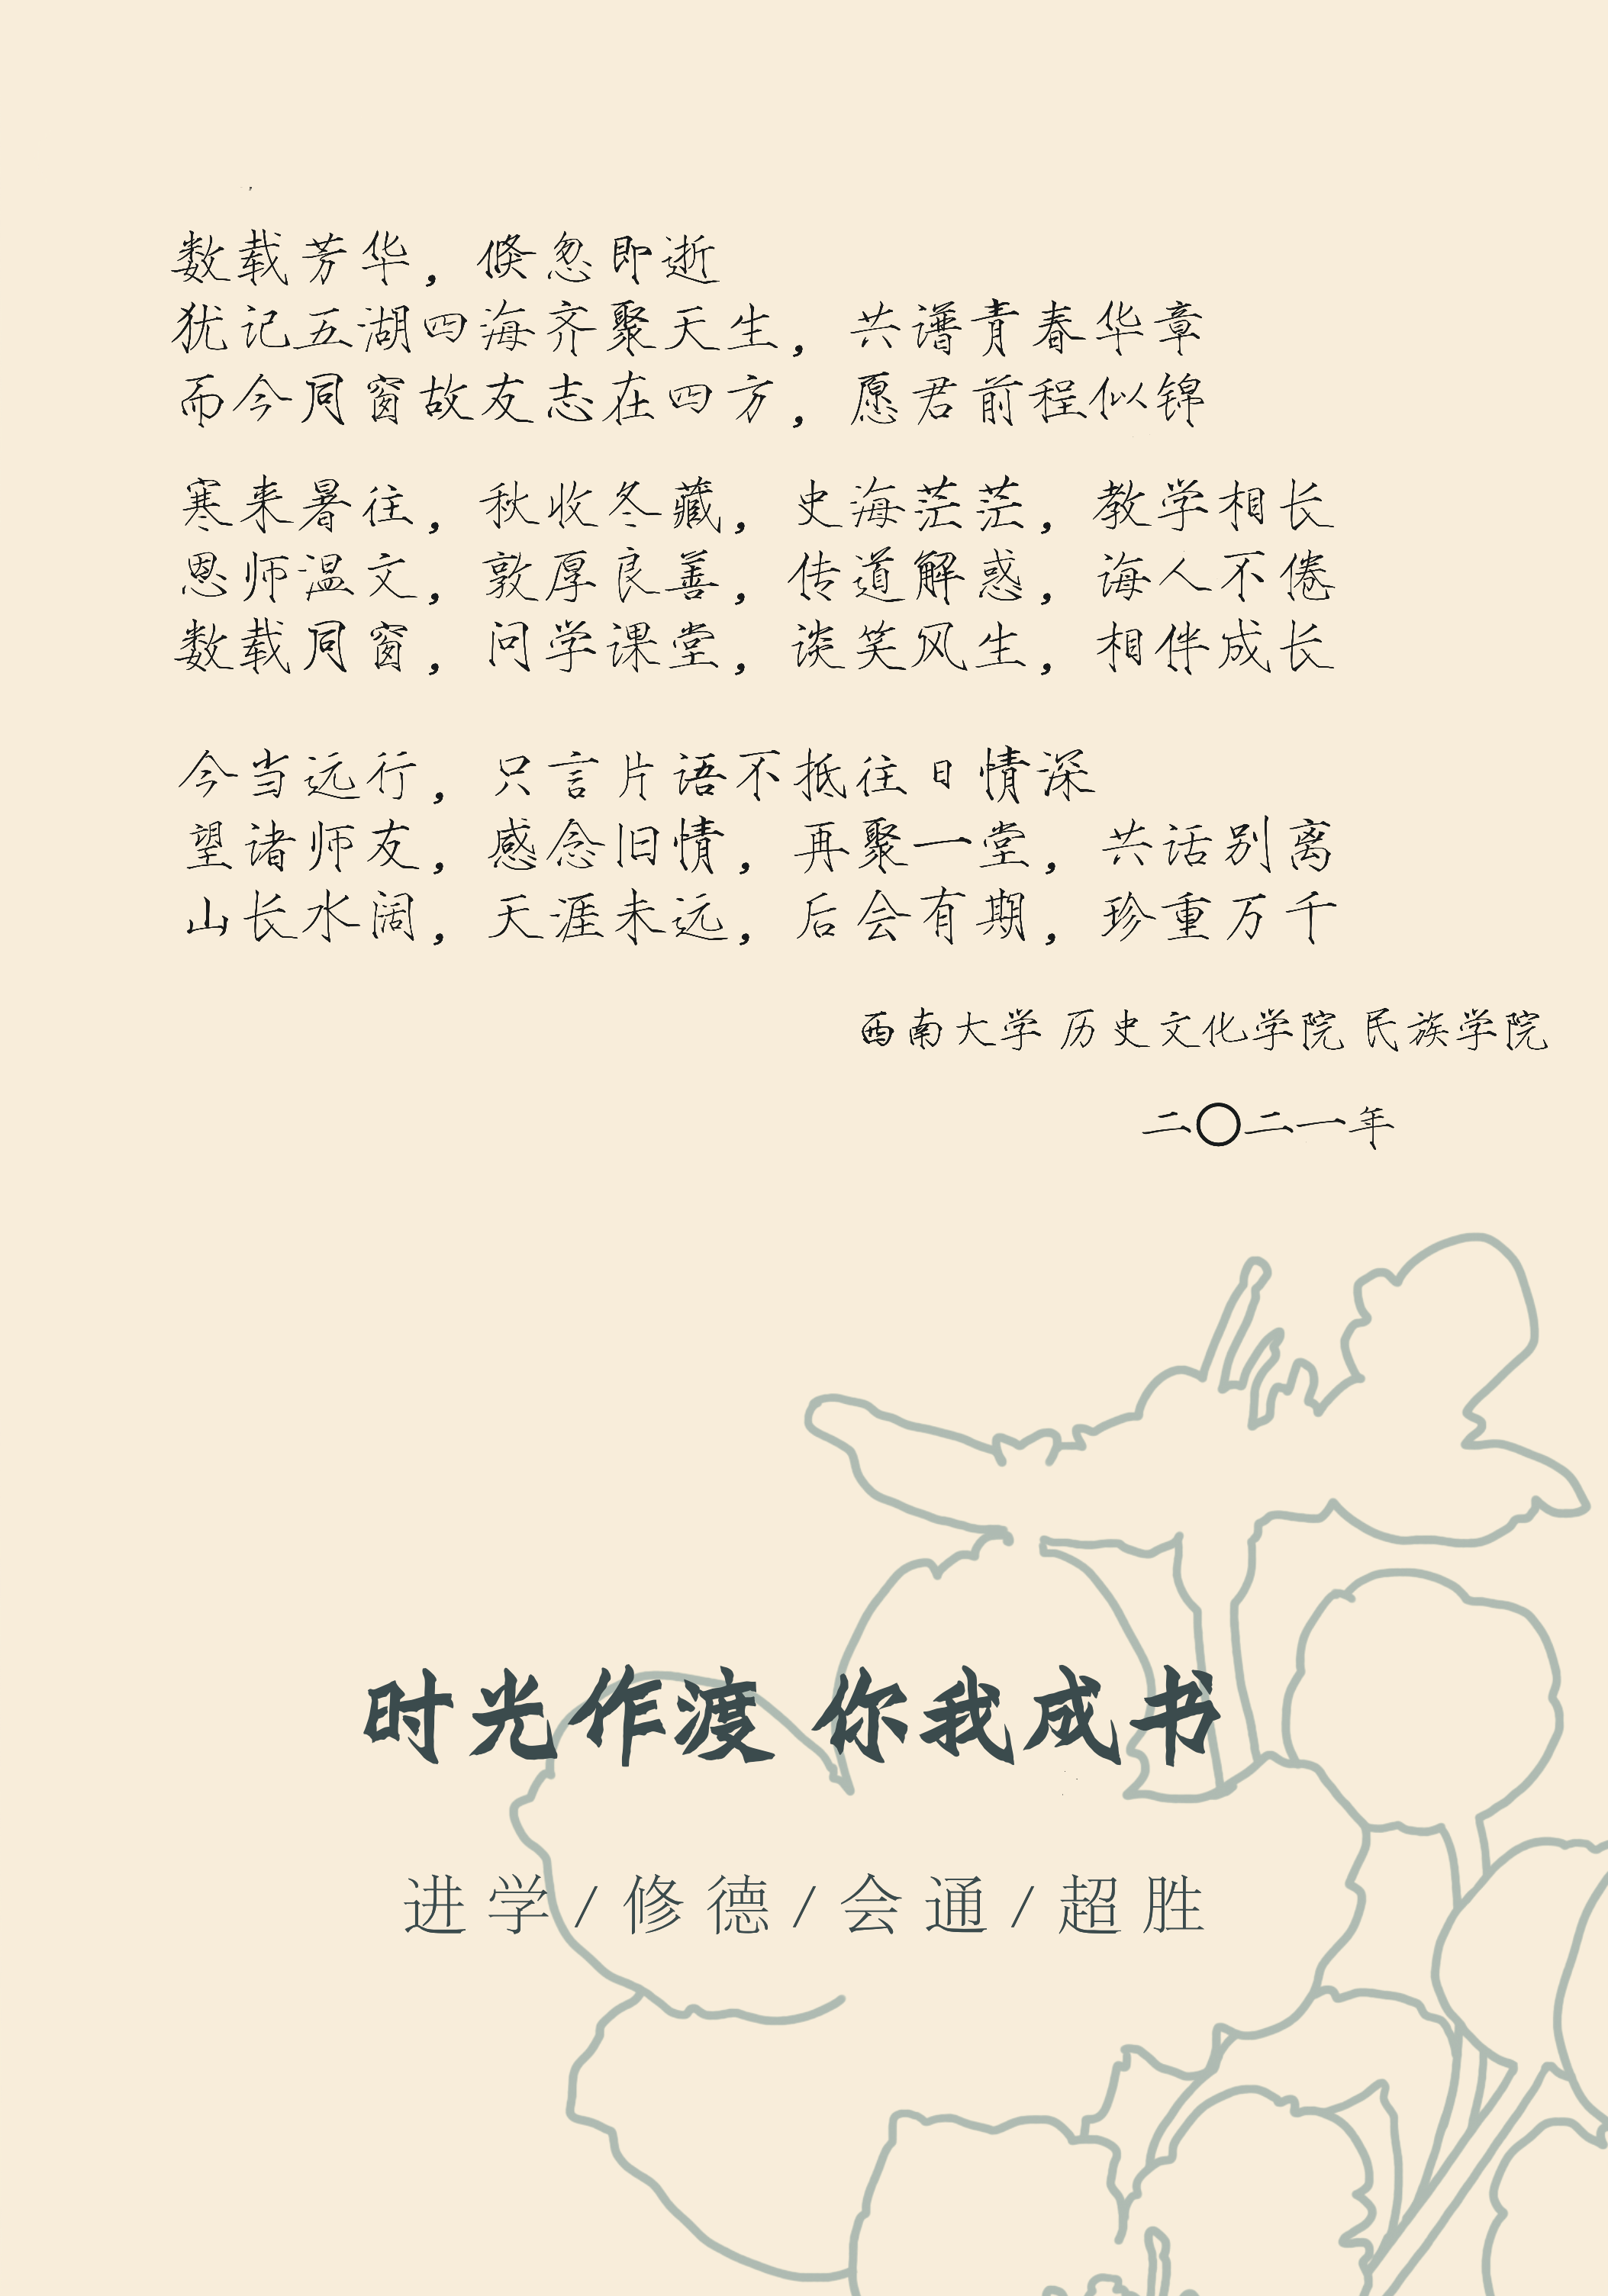 数载芳华，倏忽即逝
犹记五湖四海齐聚天生，共谱青春华章
而今同窗故友志在四方，愿君前程似锦
寒来暑往，秋收冬藏，史海茫茫，教学相长
恩师温文，敦厚良善，传道解惑，诲人不倦
数载同窗，问学课堂，谈笑风生，相伴成长
今当远行，只言片语不抵往日情深
望诸师友，感念旧情，再聚一堂，共话别离
山长水阔，天涯未远，后会有期，珍重万千
西南大学 历史文化学院 民族学院
二〇二一年
时光作渡 你我成书
进学/修德/会通/超胜